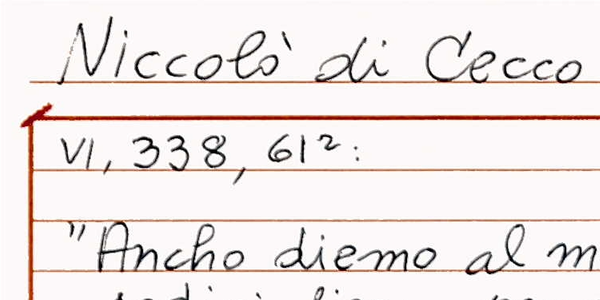 Niccolò di Cecco
VI, 338, 61²:
"Ancho diemo al m